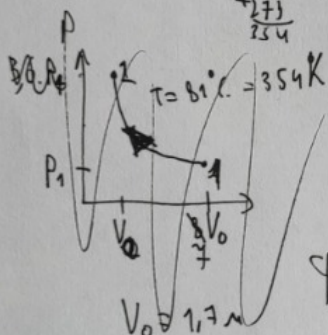 +273
354
P
2
T = 81°C = 354K
P₁
1
V₀
7
V₀ = 1,7 м